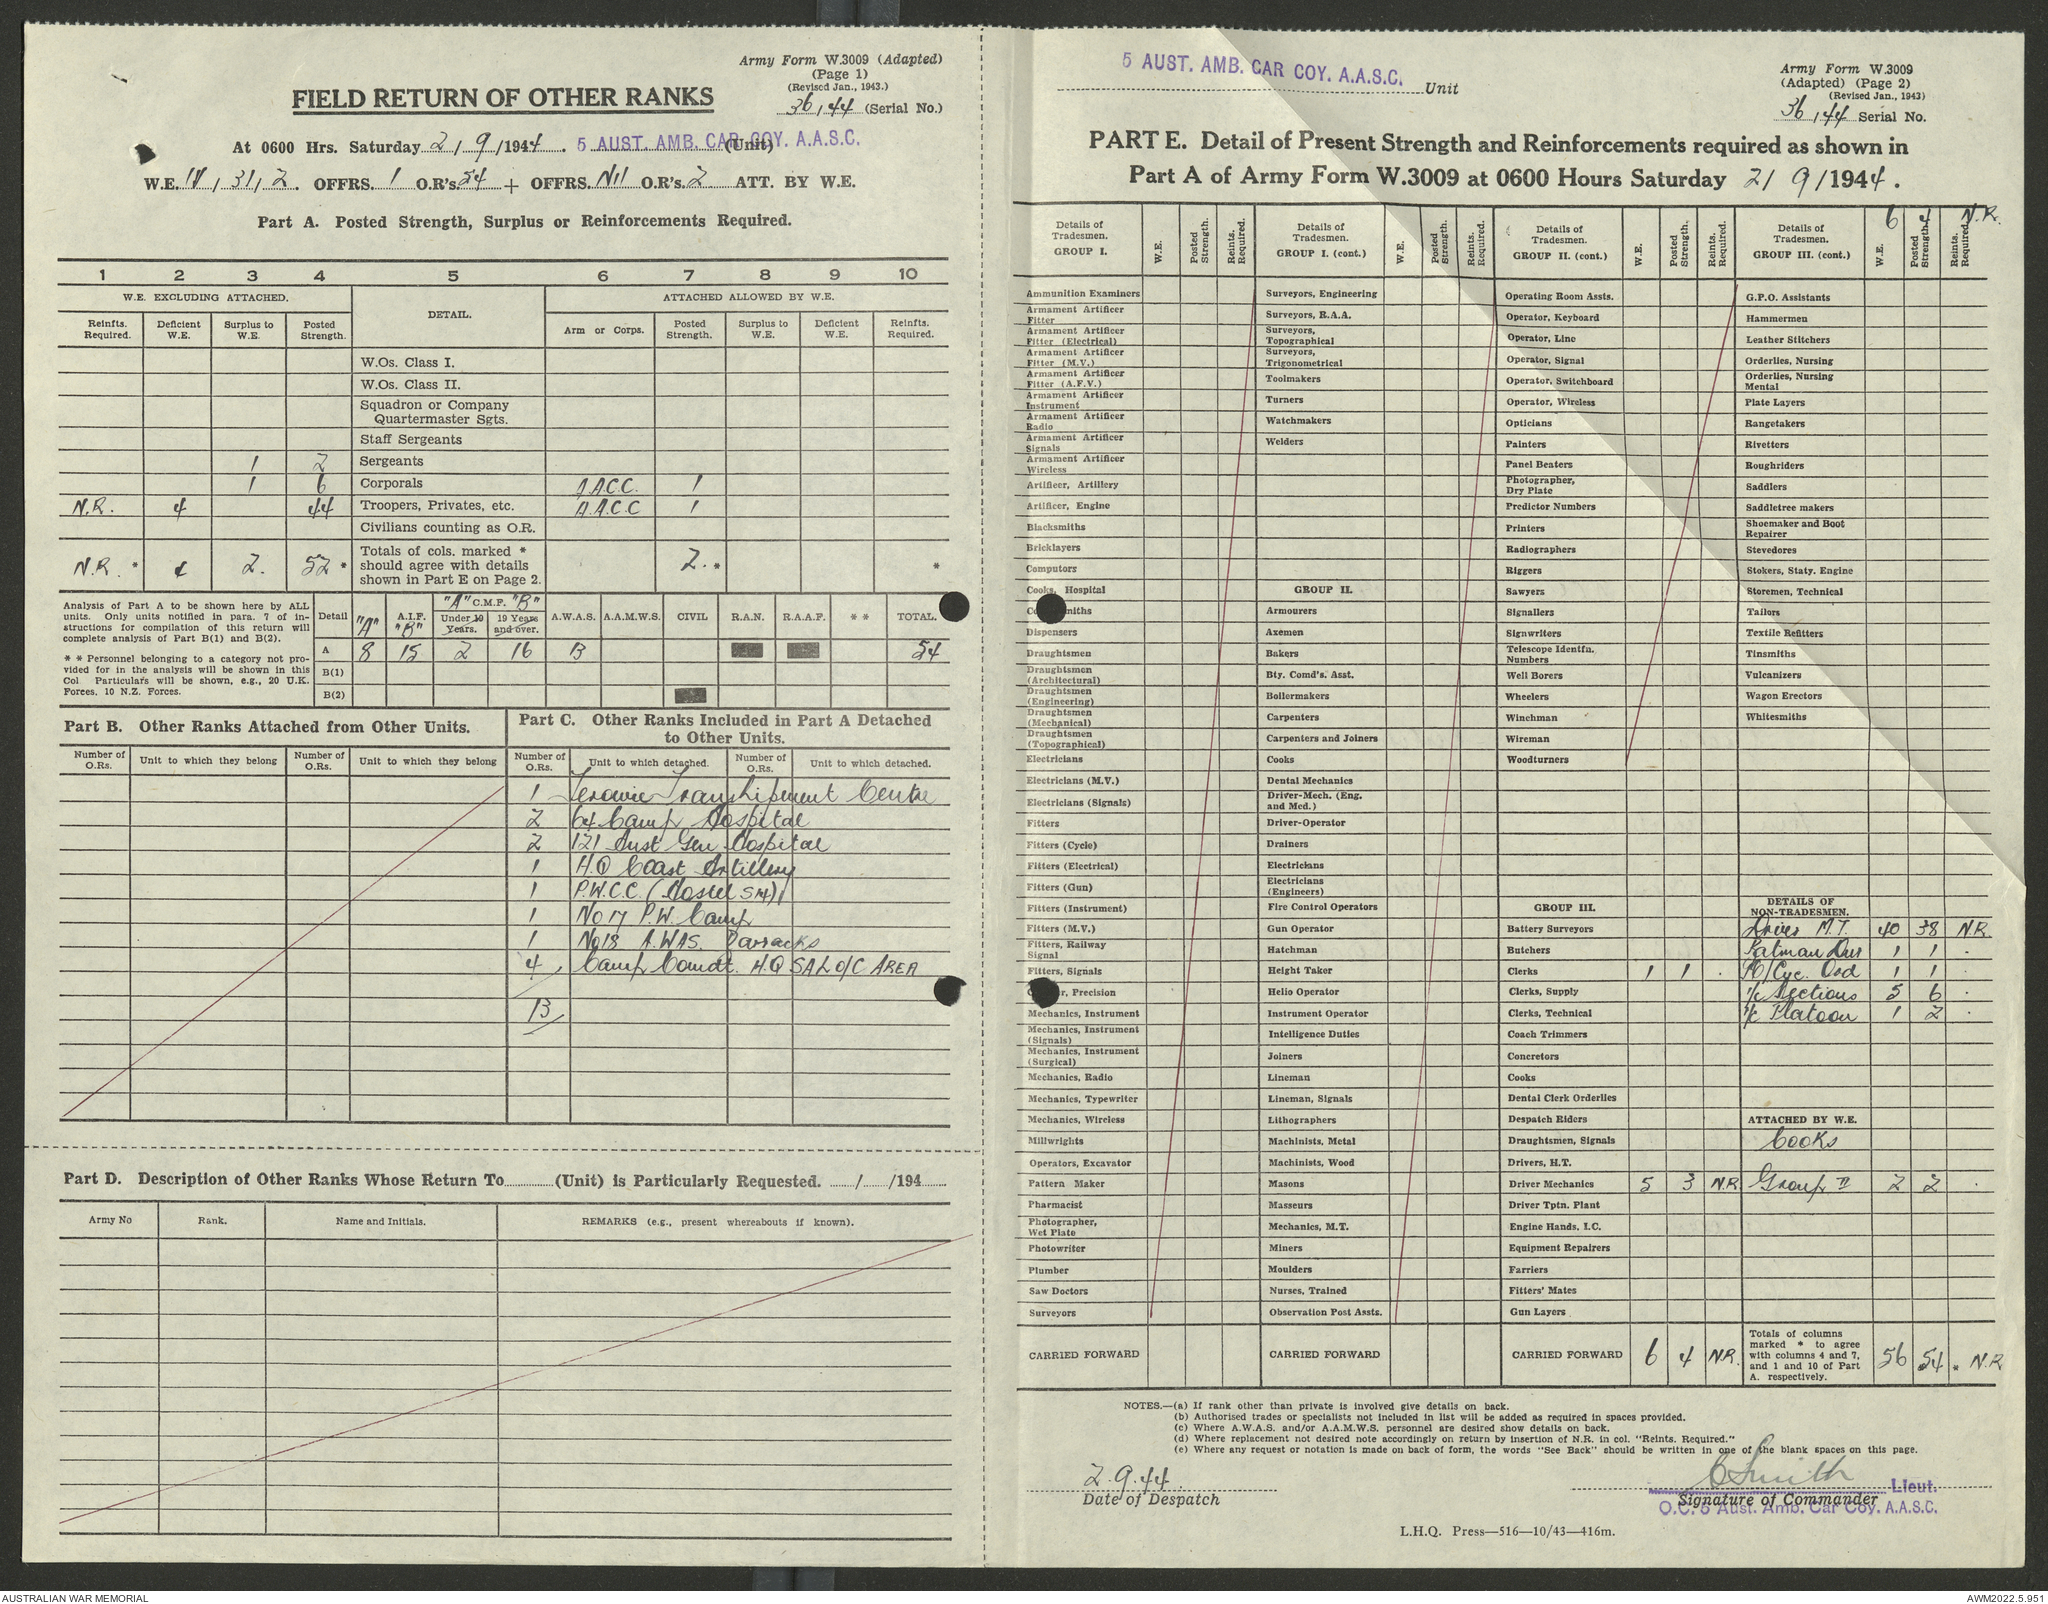 Army Form W.3009 (Adapted)
(Page 1)
(Revised Jan., 1943.)
36/44 (Serial No.)
FIELD RETURN OF OTHER RANKS
At 0600 Hrs. Saturday 2/9/1944. 5 AUST. AMB. CAR COY. A.A.S.C. (Unit)
W.E. IV/31/2 OFFRS. 1 O.R's 54 + OFFRS. Nil O.R's. 2 ATT. BY W.E.
Part A. Posted Strength, Surplus or Reinforcements Required.
1 2 3 4 5 6 7 8 9 10
W.E. EXCLUDING ATTACHED. DETAIL. ATTACHED ALLOWED BY W.E.
Reinfts. Required. Deficient W.E. Surplus to W.E. Posted Strength. Arm or Corps. Posted Strength. Surplus to W.E. Deficient W.E. Reinfts. Required.
W.Os. Class I.
W.Os. Class II.
Squadron or Company
Quartermaster Sgts.
Staff Sergeants
1 2 Sergeants
1 6 Corporals A.A.C.C. 1
N.R. 4 44 Troopers, Privates, etc. A.A.C.C 1
Civilians counting as O.R.
N.R. * 4 2. 52 * Totals of cols. marked * should agree with details shown in Part E on Page 2. 2. * *
Analysis of Part A to be shown here by ALL units. Only units notified in para. 7 of instructions for compilation of this return will complete analysis of Part B(1) and B(2).
* * Personnel belonging to a category not provided for in the analysis will be shown in this Col. Particulars will be shown, e.g., 20 U.K. Forces, 10 N.Z. Forces.
Detail "A" A.I.F. "B" "A" C.M.F. "B" Under 19 Years. 19 Years and over. A.W.A.S. A.A.M.W.S. CIVIL R.A.N. R.A.A.F. * * TOTAL.
A 8 15 2 16 13 54
B(1)
B(2)
Part B. Other Ranks Attached from Other Units.
Number of O.Rs. Unit to which they belong Number of O.Rs. Unit to which they belong
Part C. Other Ranks Included in Part A Detached
to Other Units.
Number of O.Rs. Unit to which detached. Number of O.Rs. Unit to which detached.
1 Terowie Transhipment Centre
2 64 Camp Hospital
2 121 Aust Gen Hospital
1 H.Q Coast Artillery
1 P.W.C.C. (Hostel SM)
1 No 17 P.W. Camp
1 No 18 A.W.A.S. Barracks
4 Camp Comdt. H.Q SA L of C AREA
13
Part D. Description of Other Ranks Whose Return To (Unit) is Particularly Requested. / /194
Army No Rank. Name and Initials. REMARKS (e.g., present whereabouts if known).
5 AUST. AMB. CAR COY. A.A.S.C. Unit
Army Form W.3009
(Adapted) (Page 2)
(Revised Jan., 1943)
36/44 Serial No.
PART E. Detail of Present Strength and Reinforcements required as shown in
Part A of Army Form W.3009 at 0600 Hours Saturday 2/9/1944.
Details of Tradesmen. GROUP I. W.E. Posted Strength. Reints. Required.
Ammunition Examiners
Armament Artificer Fitter
Armament Artificer Fitter (Electrical)
Armament Artificer Fitter (M.V.)
Armament Artificer Fitter (A.F.V.)
Armament Artificer Instrument
Armament Artificer Radio
Armament Artificer Signals
Armament Artificer Wireless
Artificer, Artillery
Artificer, Engine
Blacksmiths
Bricklayers
Computors
Cooks, Hospital
miths
Dispensers
Draughtsmen
Draughtsmen (Architectural)
Draughtsmen (Engineering)
Draughtsmen (Mechanical)
Draughtsmen (Topographical)
Electricians
Electricians (M.V.)
Electricians (Signals)
Fitters
Fitters (Cycle)
Fitters (Electrical)
Fitters (Gun)
Fitters (Instrument)
Fitters (M.V.)
Fitters, Railway Signal
Fitters, Signals
r, Precision
Mechanics, Instrument
Mechanics, Instrument (Signals)
Mechanics, Instrument (Surgical)
Mechanics, Radio
Mechanics, Typewriter
Mechanics, Wireless
Millwrights
Operators, Excavator
Pattern Maker
Pharmacist
Photographer, Wet Plate
Photowriter
Plumber
Saw Doctors
Surveyors
CARRIED FORWARD
Details of Tradesmen. GROUP I. (cont.) W.E. Posted Strength. Reints. Required.
Surveyors, Engineering
Surveyors, R.A.A.
Surveyors, Topographical
Surveyors, Trigonometrical
Toolmakers
Turners
Watchmakers
Welders
GROUP II.
Armourers
Axemen
Bakers
Bty. Comd's. Asst.
Boilermakers
Carpenters
Carpenters and Joiners
Cooks
Dental Mechanics
Driver-Mech. (Eng. and Med.)
Driver-Operator
Drainers
Electricians
Electricians (Engineers)
Fire Control Operators
Gun Operator
Hatchman
Height Taker
Helio Operator
Instrument Operator
Intelligence Duties
Joiners
Lineman
Lineman, Signals
Lithographers
Machinists, Metal
Machinists, Wood
Masons
Masseurs
Mechanics, M.T.
Miners
Moulders
Nurses, Trained
Observation Post Assts.
CARRIED FORWARD
Details of Tradesmen. GROUP II. (cont.) W.E. Posted Strength. Reints. Required.
Operating Room Assts.
Operator, Keyboard
Operator, Line
Operator, Signal
Operator, Switchboard
Operator, Wireless
Opticians
Painters
Panel Beaters
Photographer, Dry Plate
Predictor Numbers
Printers
Radiographers
Riggers
Sawyers
Signallers
Signwriters
Telescope Identfn. Numbers
Well Borers
Wheelers
Winchman
Wireman
Woodturners
GROUP III.
Battery Surveyors
Butchers
Clerks 1 1 .
Clerks, Supply
Clerks, Technical
Coach Trimmers
Concretors
Cooks
Dental Clerk Orderlies
Despatch Riders
Draughtsmen, Signals
Drivers, H.T.
Driver Mechanics 5 3 N.R
Driver Tptn. Plant
Engine Hands, I.C.
Equipment Repairers
Farriers
Fitters' Mates
Gun Layers
CARRIED FORWARD 6 4 N.R.
Details of Tradesmen. GROUP III. (cont.) W.E. Posted Strength. Reints. Required. 6 4 N.R.
G.P.O. Assistants
Hammermen
Leather Stitchers
Orderlies, Nursing
Orderlies, Nursing Mental
Plate Layers
Rangetakers
Rivetters
Roughriders
Saddlers
Saddletree makers
Shoemaker and Boot Repairer
Stevedores
Stokers, Staty. Engine
Storemen, Technical
Tailors
Textile Refitters
Tinsmiths
Vulcanizers
Wagon Erectors
Whitesmiths
DETAILS OF NON-TRADESMEN.
Driver M.T. 40 38 N.R.
Batman Dvr 1 1 .
M/Cyc. Ord 1 1 .
i/c Sections 5 6 .
i/c Platoon 1 2 .
ATTACHED BY W.E.
Cooks
Group II 2 2 .
Totals of columns marked * to agree with columns 4 and 7, and 1 and 10 of Part A. respectively. 56 * 54 * N.R
NOTES.—(a) If rank other than private is involved give details on back.
(b) Authorised trades or specialists not included in list will be added as required in spaces provided.
(c) Where A.W.A.S. and/or A.A.M.W.S. personnel are desired show details on back.
(d) Where replacement not desired note accordingly on return by insertion of N.R. in col. "Reints. Required."
(e) Where any request or notation is made on back of form, the words "See Back" should be written in one of the blank spaces on this page.
2.9.44
Date of Despatch
C Smith Lieut.
Signature of Commander
O.C. 5 Aust. Amb. Car Coy. A.A.S.C.
L.H.Q. Press—516—10/43—416m.
AUSTRALIAN WAR MEMORIAL
AWM2022.5.951